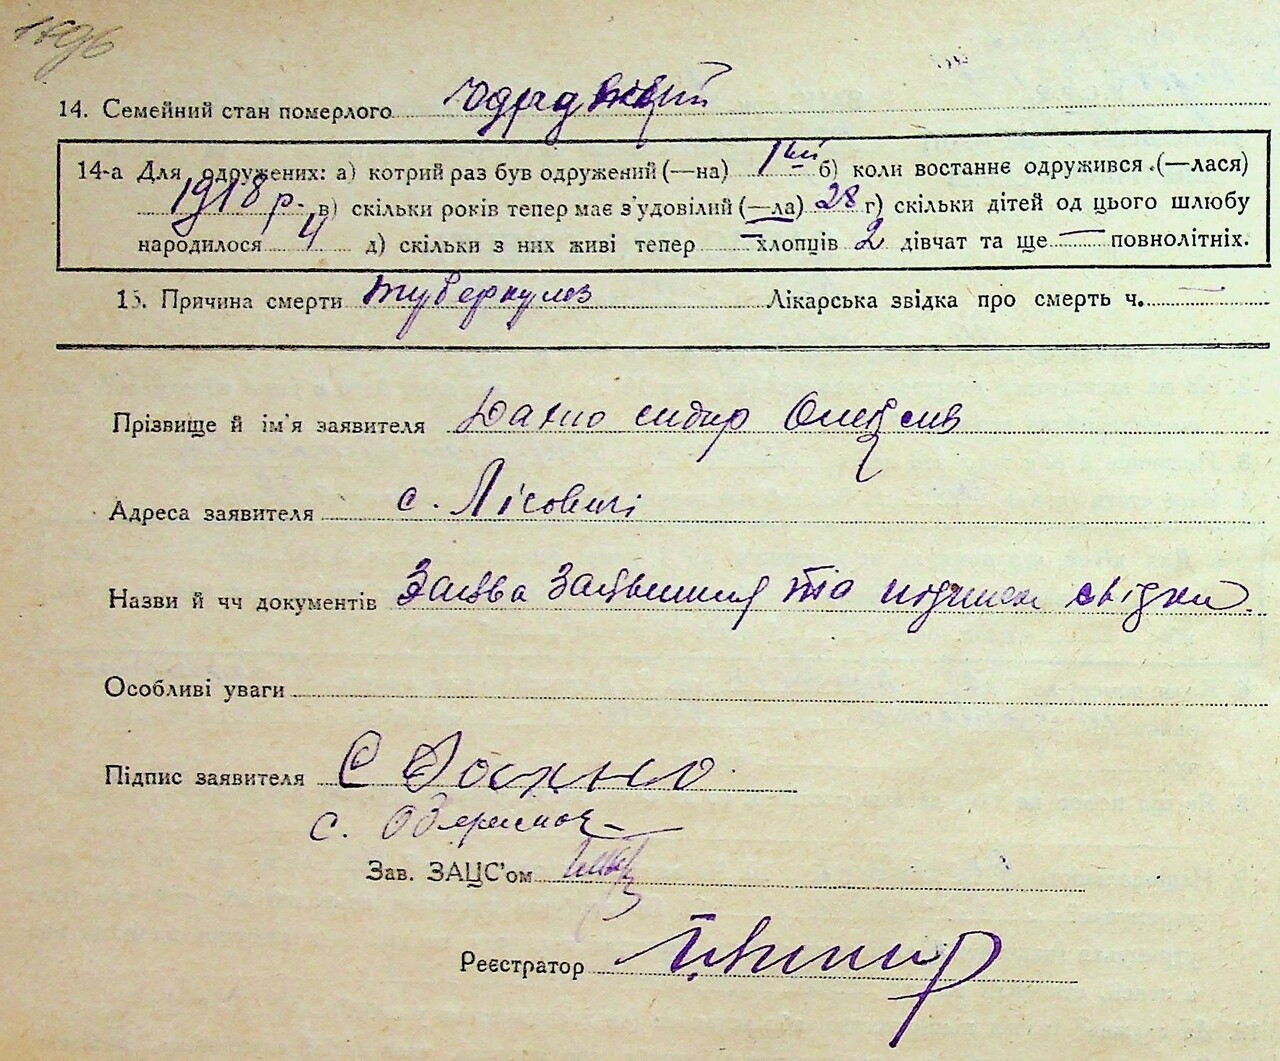 1896
14. Семейний стан померлого одружений
14-а Для одружених: а) котрий раз був одружений (—на) 1ий б) коли востаннє одружився (—лася)
1918 р. в) скільки років тепер має з'удовілий (—ла) 28 г) скільки дітей од цього шлюбу
народилося 4 д) скільки з них живі тепер — хлопців 2 дівчат та ще — повнолітніх.
15. Причина смерти туберкулез Лікарська звідка про смерть ч. —
Прізвище й ім'я заявителя Дахно сидир
Адреса заявителя с. Лісовичі
Назви й чч документів Заява та підписи свідки
Особливі уваги
Підпис заявителя С Дахно
с.
Зав. ЗАЦС'ом
Реєстратор